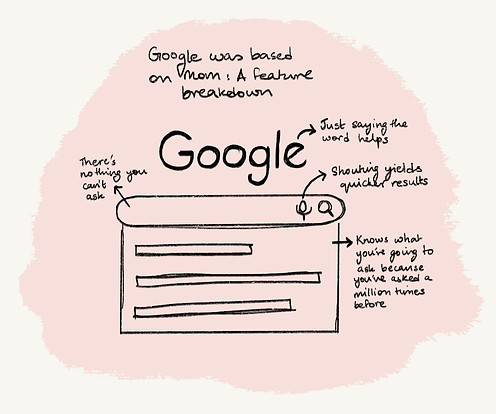 Google was based
on Mom : A feature
breakdown
Just saying the
word helps
Google
There's
nothing you
can't
ask
Shouting yields
quicker results
Knows what
you're going to
ask because
you've asked a
million times
before